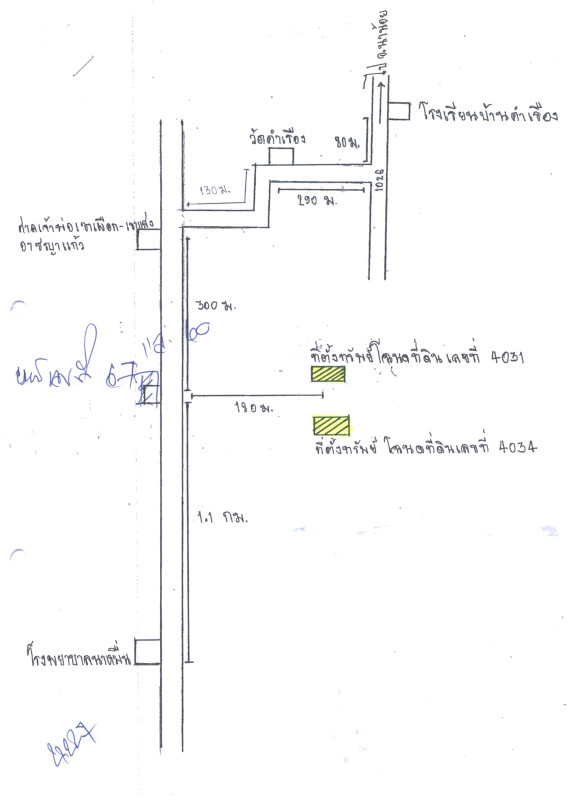 ไป อ.นาน้อย
โรงเรียนบ้านคำเรือง
วัดคำเรือง
80 ม.
130 ม.
290 ม.
1026
ศาลเจ้าพ่อเขาเผือก-เขาแสง
อาชญาแก้ว
300 ม.
60
67
ที่ตั้งทรัพย์ โฉนดที่ดิน เลขที่ 4031
180 ม.
ที่ตั้งทรัพย์ โฉนดที่ดินเลขที่ 4034
1.1 กม.
โรงพยาบาลนาหมื่น